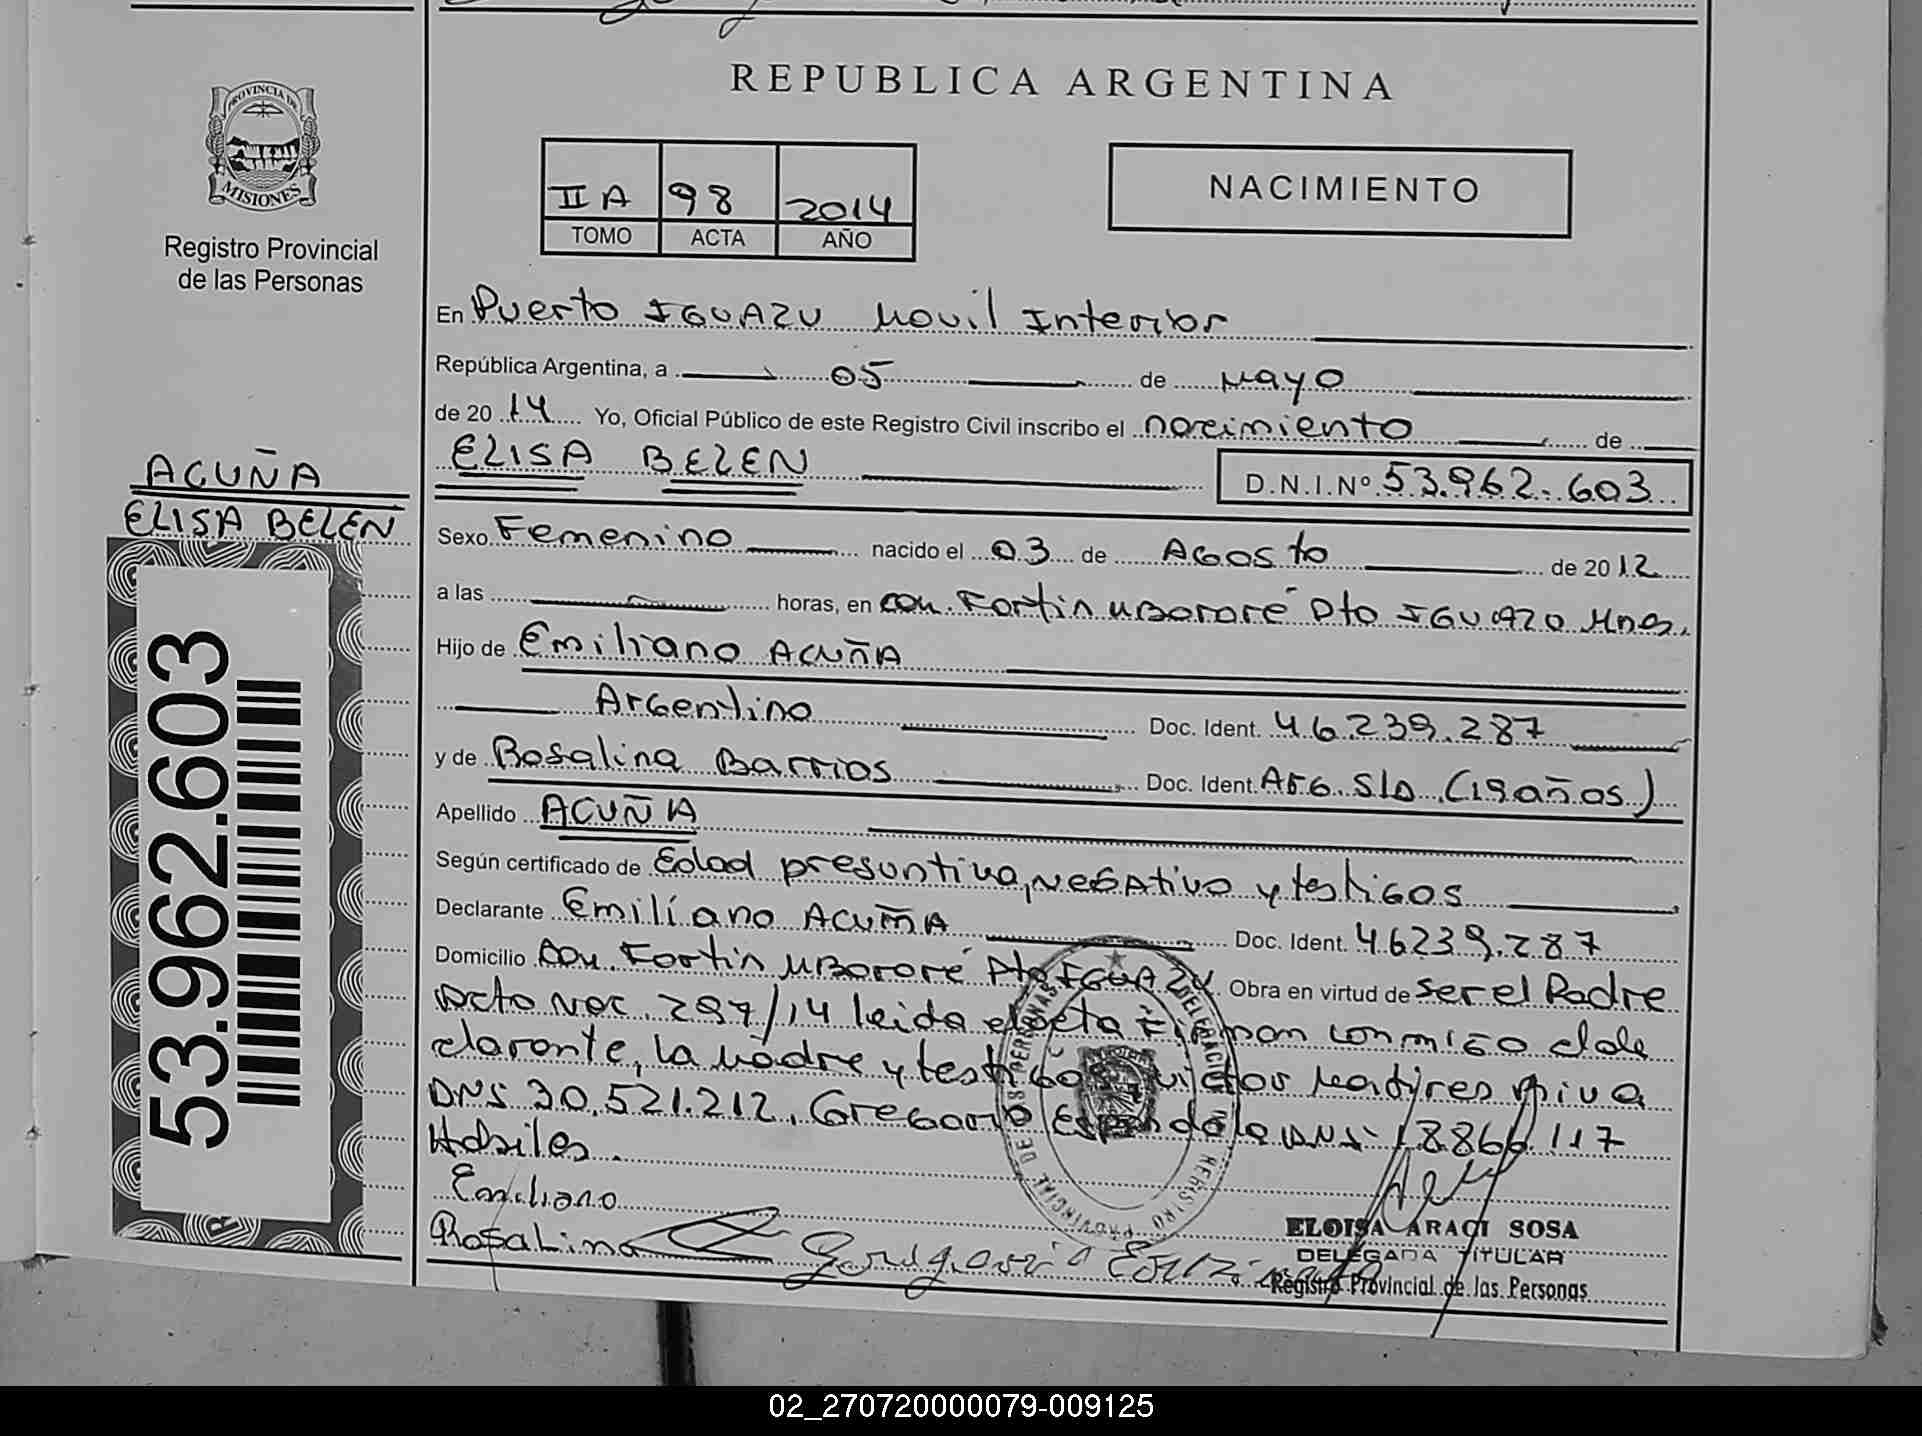 REPUBLICA ARGENTINA
PROVINCIA DE
MISIONES
Registro Provincial
de las Personas
II A 98 2014
TOMO ACTA AÑO
NACIMIENTO
En Puerto IGUAZU Movil Interior
República Argentina, a 05 de Mayo
de 2014 Yo, Oficial Público de este Registro Civil inscribo el nacimiento de
ELISA BELEN D.N.I.Nº 53.962.603
ACUÑA
ELISA BELEN
53.962.603
Sexo Femenino nacido el 03 de AGosto de 2012
a las horas, en com. Fortin MBororé Pto IGUAZU Mnes.
Hijo de Emiliano ACUÑA
Argentino Doc. Ident. 46239.287
y de Rosalina Barrios Doc. Ident. ARG. S/D (19 años)
Apellido ACUÑA
Según certificado de Edad presuntiva, NEGAtivo y testigos
Declarante Emiliano ACUÑA Doc. Ident. 46239.287
Domicilio Com. Fortin MBororé Pto IGUAZU Obra en virtud de ser el Padre
Dcto Nac. 297/14 leida el acta Firman conmigo el de
clarante, la madre y testigos Victor
DNI 30.521.212, Gregorio DNI 18866117
Habiles.
Emiliano
Rosalina
DELEGACION REGISTRO PROVINCIAL DE LAS PERSONAS
ELOISA ARACI SOSA
DELEGADA TITULAR
Registro Provincial de las Personas
02_270720000079-009125